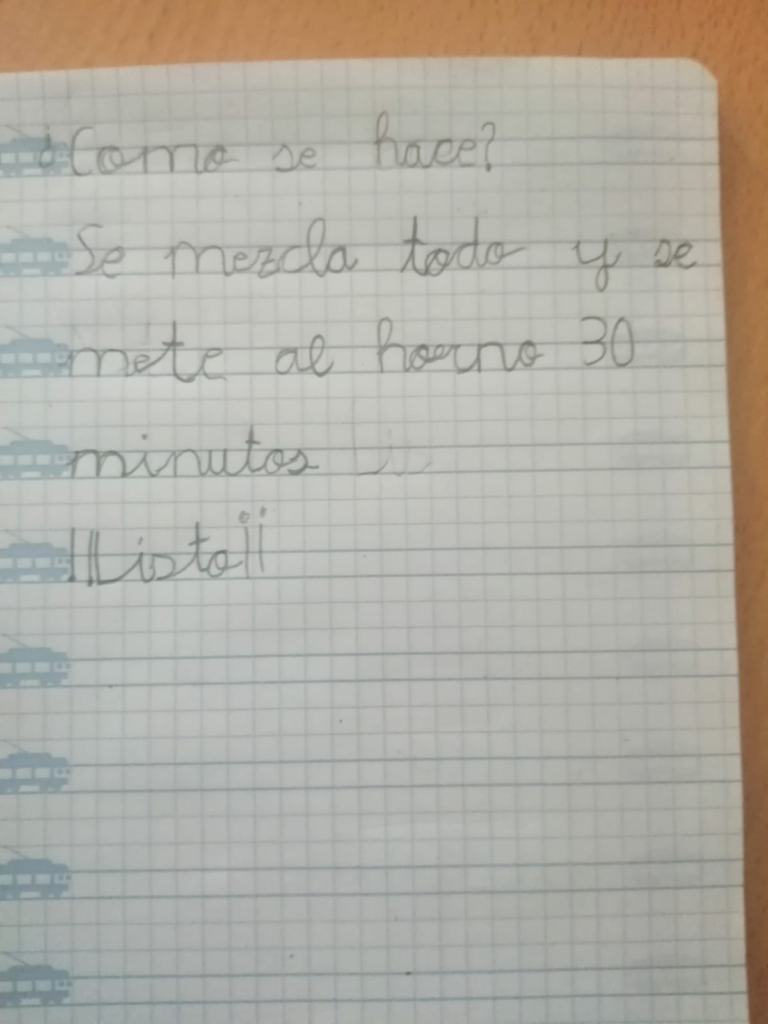 ¿Como se hace?
Se mezcla todo y se
mete al horno 30
minutos
¡¡Listo!!